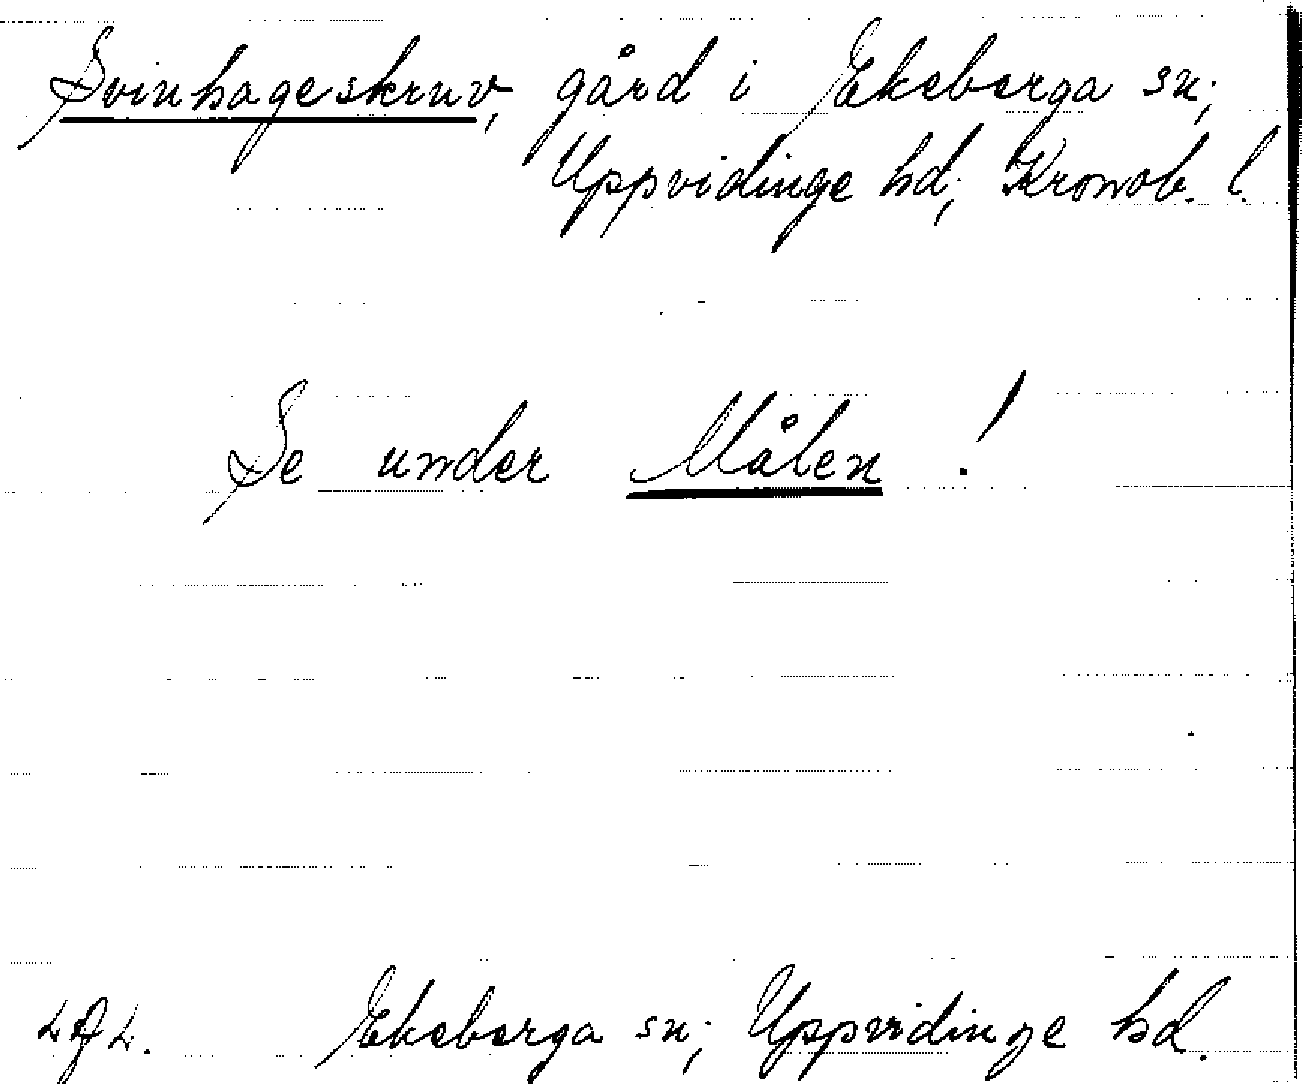 Svinhageskruv, gård i Ekeberga sn;
Uppvidinge hd; Kronob. l.
Se under Målen !
Ekeberga sn; Uppvidinge hd.